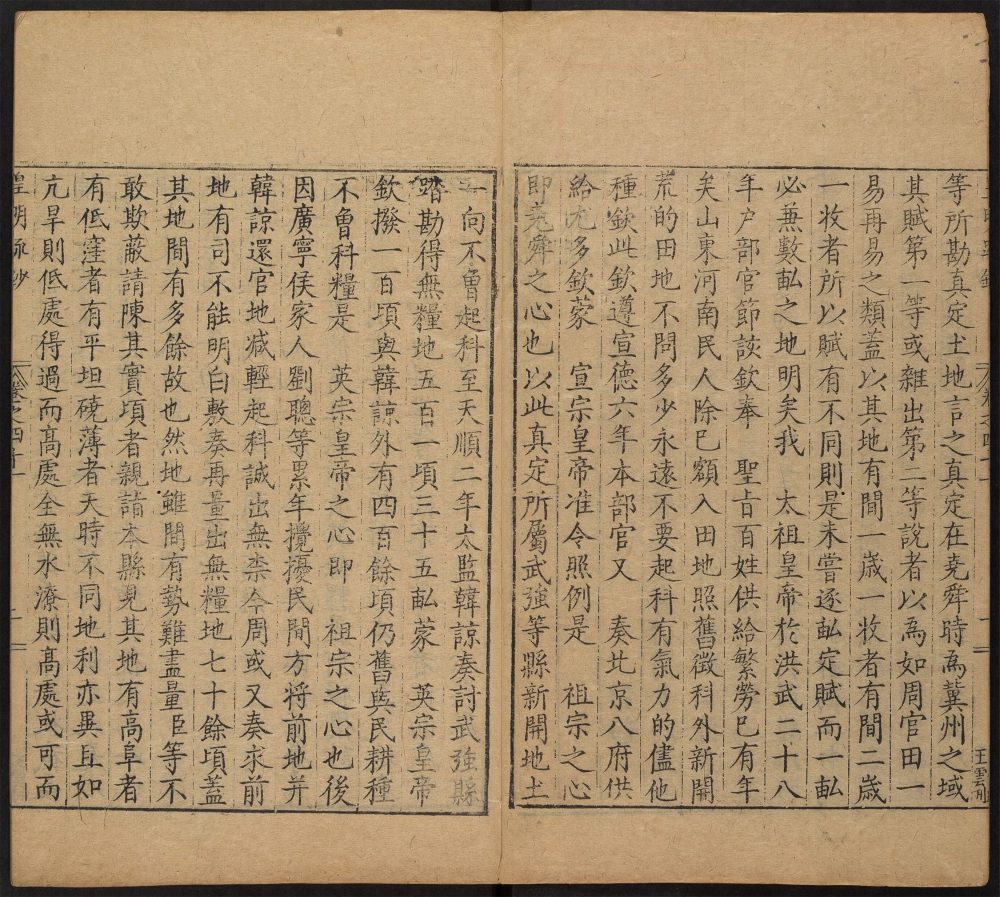 等所勘真定土地言之真定在堯舜時為冀州之域
其賦第一等或雜出第二等說者以為如周官田一
易再易之類蓋以其地有間一歲一收者有間二歲
一收者所以賦有不同則是未嘗逐畝定賦而一畝
必兼數畝之地明矣我 太祖皇帝於洪武二十八
年戶部官節該欽奉 聖旨百姓供給繁勞已有年
矣山東河南民人除已額入田地照舊徵科外新開
荒的田地不問多少永遠不要起科有氣力的儘他
種欽此欽遵宣德六年本部官又 奏北京八府供
給尤多欽蒙 宣宗皇帝准令照例是 祖宗之心
即堯舜之心也以此真定所屬武強等縣新開地土
一向不曾起科至天順二年太監韓諒奏討武強縣
踏勘得無糧地五百一頃三十五畝蒙 英宗皇帝
欽撥一百頃與韓諒外有四百餘頃仍舊與民耕種
不曾科糧是 英宗皇帝之心即 祖宗之心也後
因廣寧侯家人劉聰等累年攪擾民間方將前地并
韓諒還官地減輕起科誠出無柰今周或又奏求前
地有司不能明白敷奏再量出無糧地七十餘頃蓋
其地間有多餘故也然地雖間有勢難盡量臣等不
敢欺蔽請陳其實頃者親詣本縣見其地有高阜者
有低窪者有平坦磽薄者天時不同地利亦異且如
亢旱則低處得過而高處全無水潦則高處或可而
皇明疏鈔
卷之四十
王雲